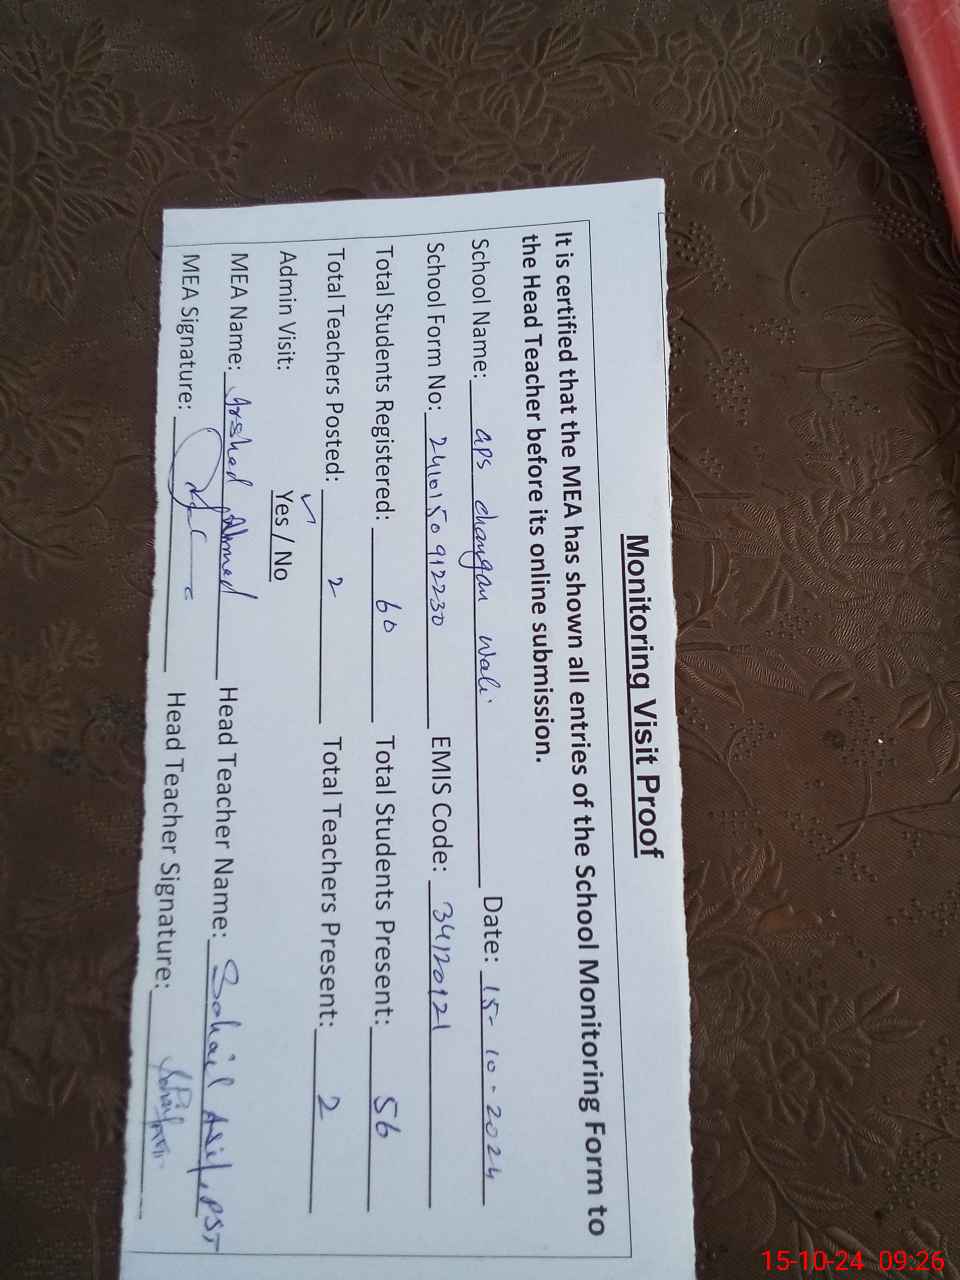 Monitoring Visit Proof
It is certified that the MEA has shown all entries of the School Monitoring Form to
the Head Teacher before its online submission.
School Name: GPS changan wali Date: 15-10-2024
School Form No: 2410150912230 EMIS Code: 34120121
Total Students Registered: 60 Total Students Present: 56
Total Teachers Posted: 2 Total Teachers Present: 2
Admin Visit: Yes / No
MEA Name: Irshad Ahmed Head Teacher Name: Sohail Asif, PST
MEA Signature: Head Teacher Signature:
15-10-24 09:26